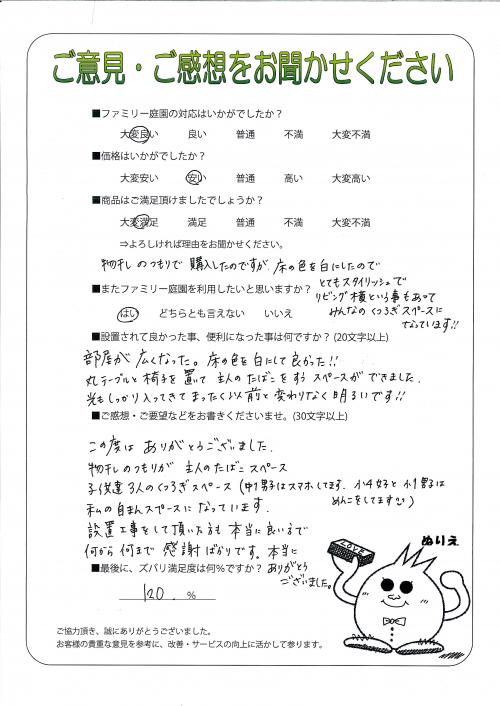 ご意見・ご感想をお聞かせください
■ファミリー庭園の対応はいかがでしたか？
大変良い 良い 普通 不満 大変不満
■価格はいかがでしたか？
大変安い 安い 普通 高い 大変高い
■商品はご満足頂けましたでしょうか？
大変満足 満足 普通 不満 大変不満
⇒よろしければ理由をお聞かせください。
物干しのつもりで購入したのですが、床の色を白にしたので
とてもスタイリッシュで
リビング横という事もあって
みんなのくつろぎスペースに
なっています!!
■またファミリー庭園を利用したいと思いますか？
はい どちらとも言えない いいえ
■設置されて良かった事、便利になった事は何ですか？(20文字以上)
部屋が広くなった。床の色を白にして良かった!!
丸テーブルと椅子を置いて主人のたばこをすうスペースができました.
光もしっかり入ってきてまったく以前と変わりなく明るいです!!
■ご感想・ご要望などをお書きくださいませ。(30文字以上)
この度はありがとうございました.
物干しのつもりが主人のたばこスペース
子供達3人のくつろぎスペース(中1男子はスマホしてます. 小4女子と小1男子は
めんこをしてます)
私の自まんスペースになっています.
設置工事をして頂いた方も本当に良い方で
何から何まで感謝ばかりです。本当に
ありがとう
ございました。
■最後に、ズバリ満足度は何%ですか？
120. %
ぬりえ
LOVE
ご協力頂き、誠にありがとうございました。
お客様の貴重な意見を参考に、改善・サービスの向上に活かして参ります。